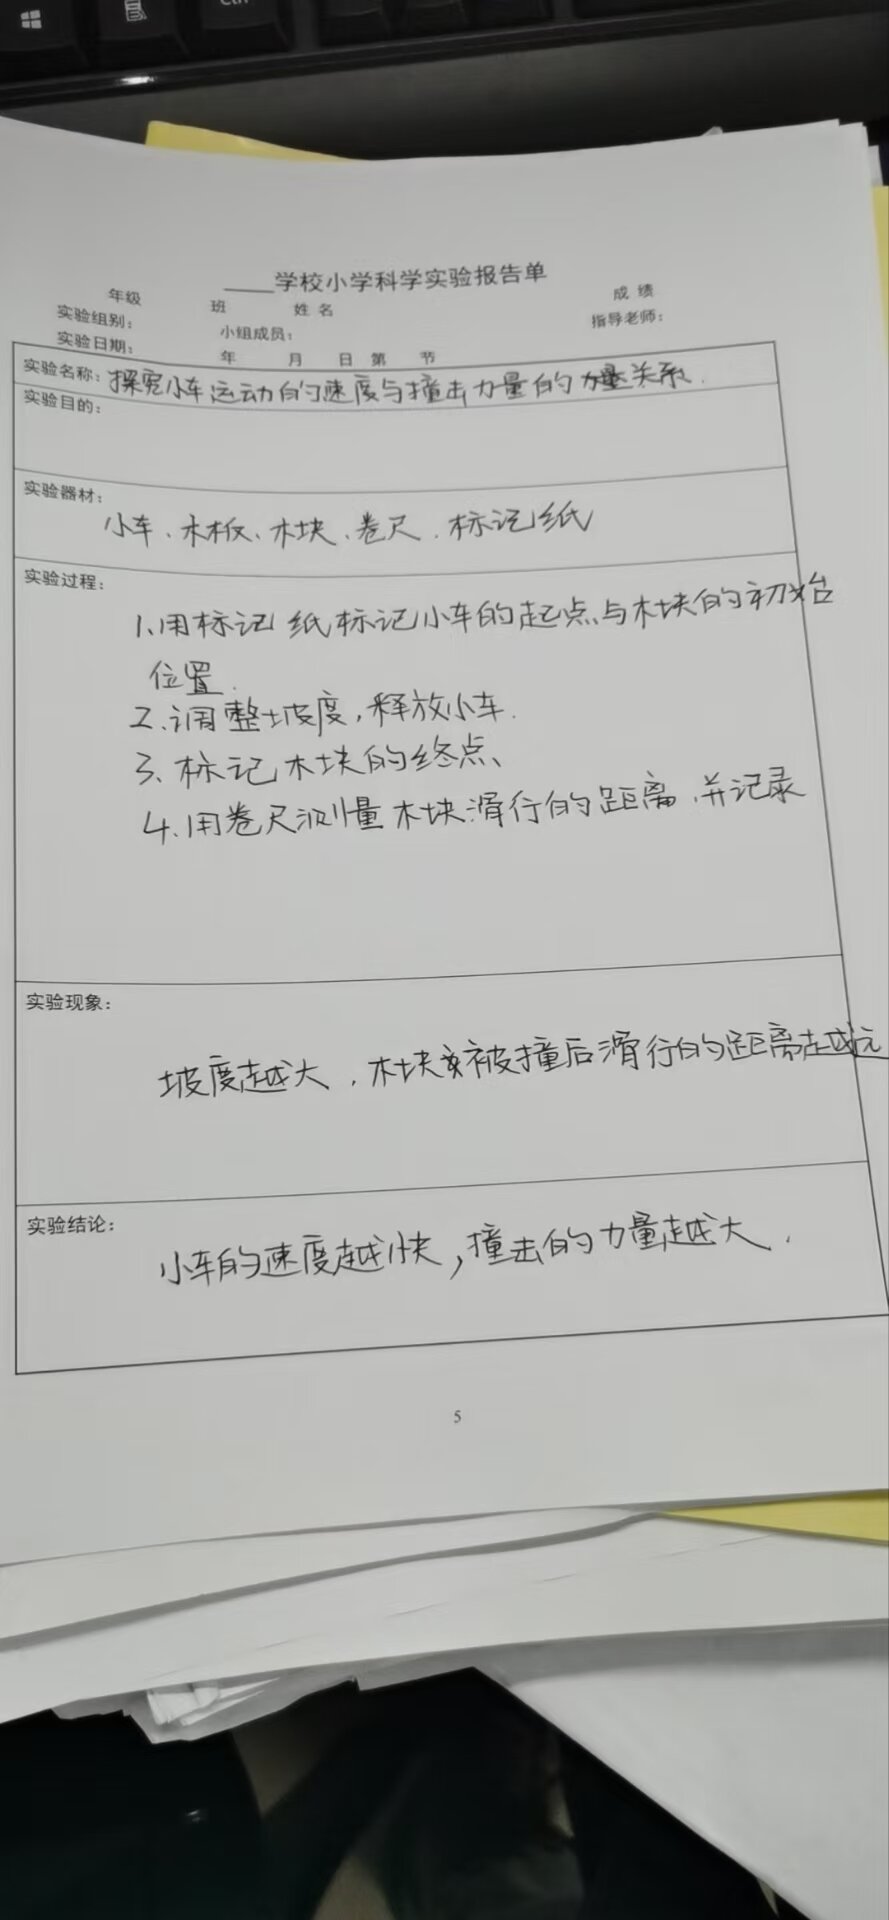 Ctrl
____学校小学科学实验报告单
年级 班 姓名 成绩
实验组别： 小组成员： 指导老师：
实验日期： 年 月 日 第 节
实验名称：探究小车运动的速度与撞击力量的关系.
实验目的：
实验器材：
小车、木板、木块、卷尺、标记纸
实验过程：
1.用标记纸标记小车的起点与木块的初始
位置.
2.调整坡度,释放小车.
3、标记木块的终点、
4.用卷尺测量木块滑行的距离、并记录
实验现象：
坡度越大,木块被撞后滑行的距离越远
实验结论：
小车的速度越快,撞击的力量越大.
5